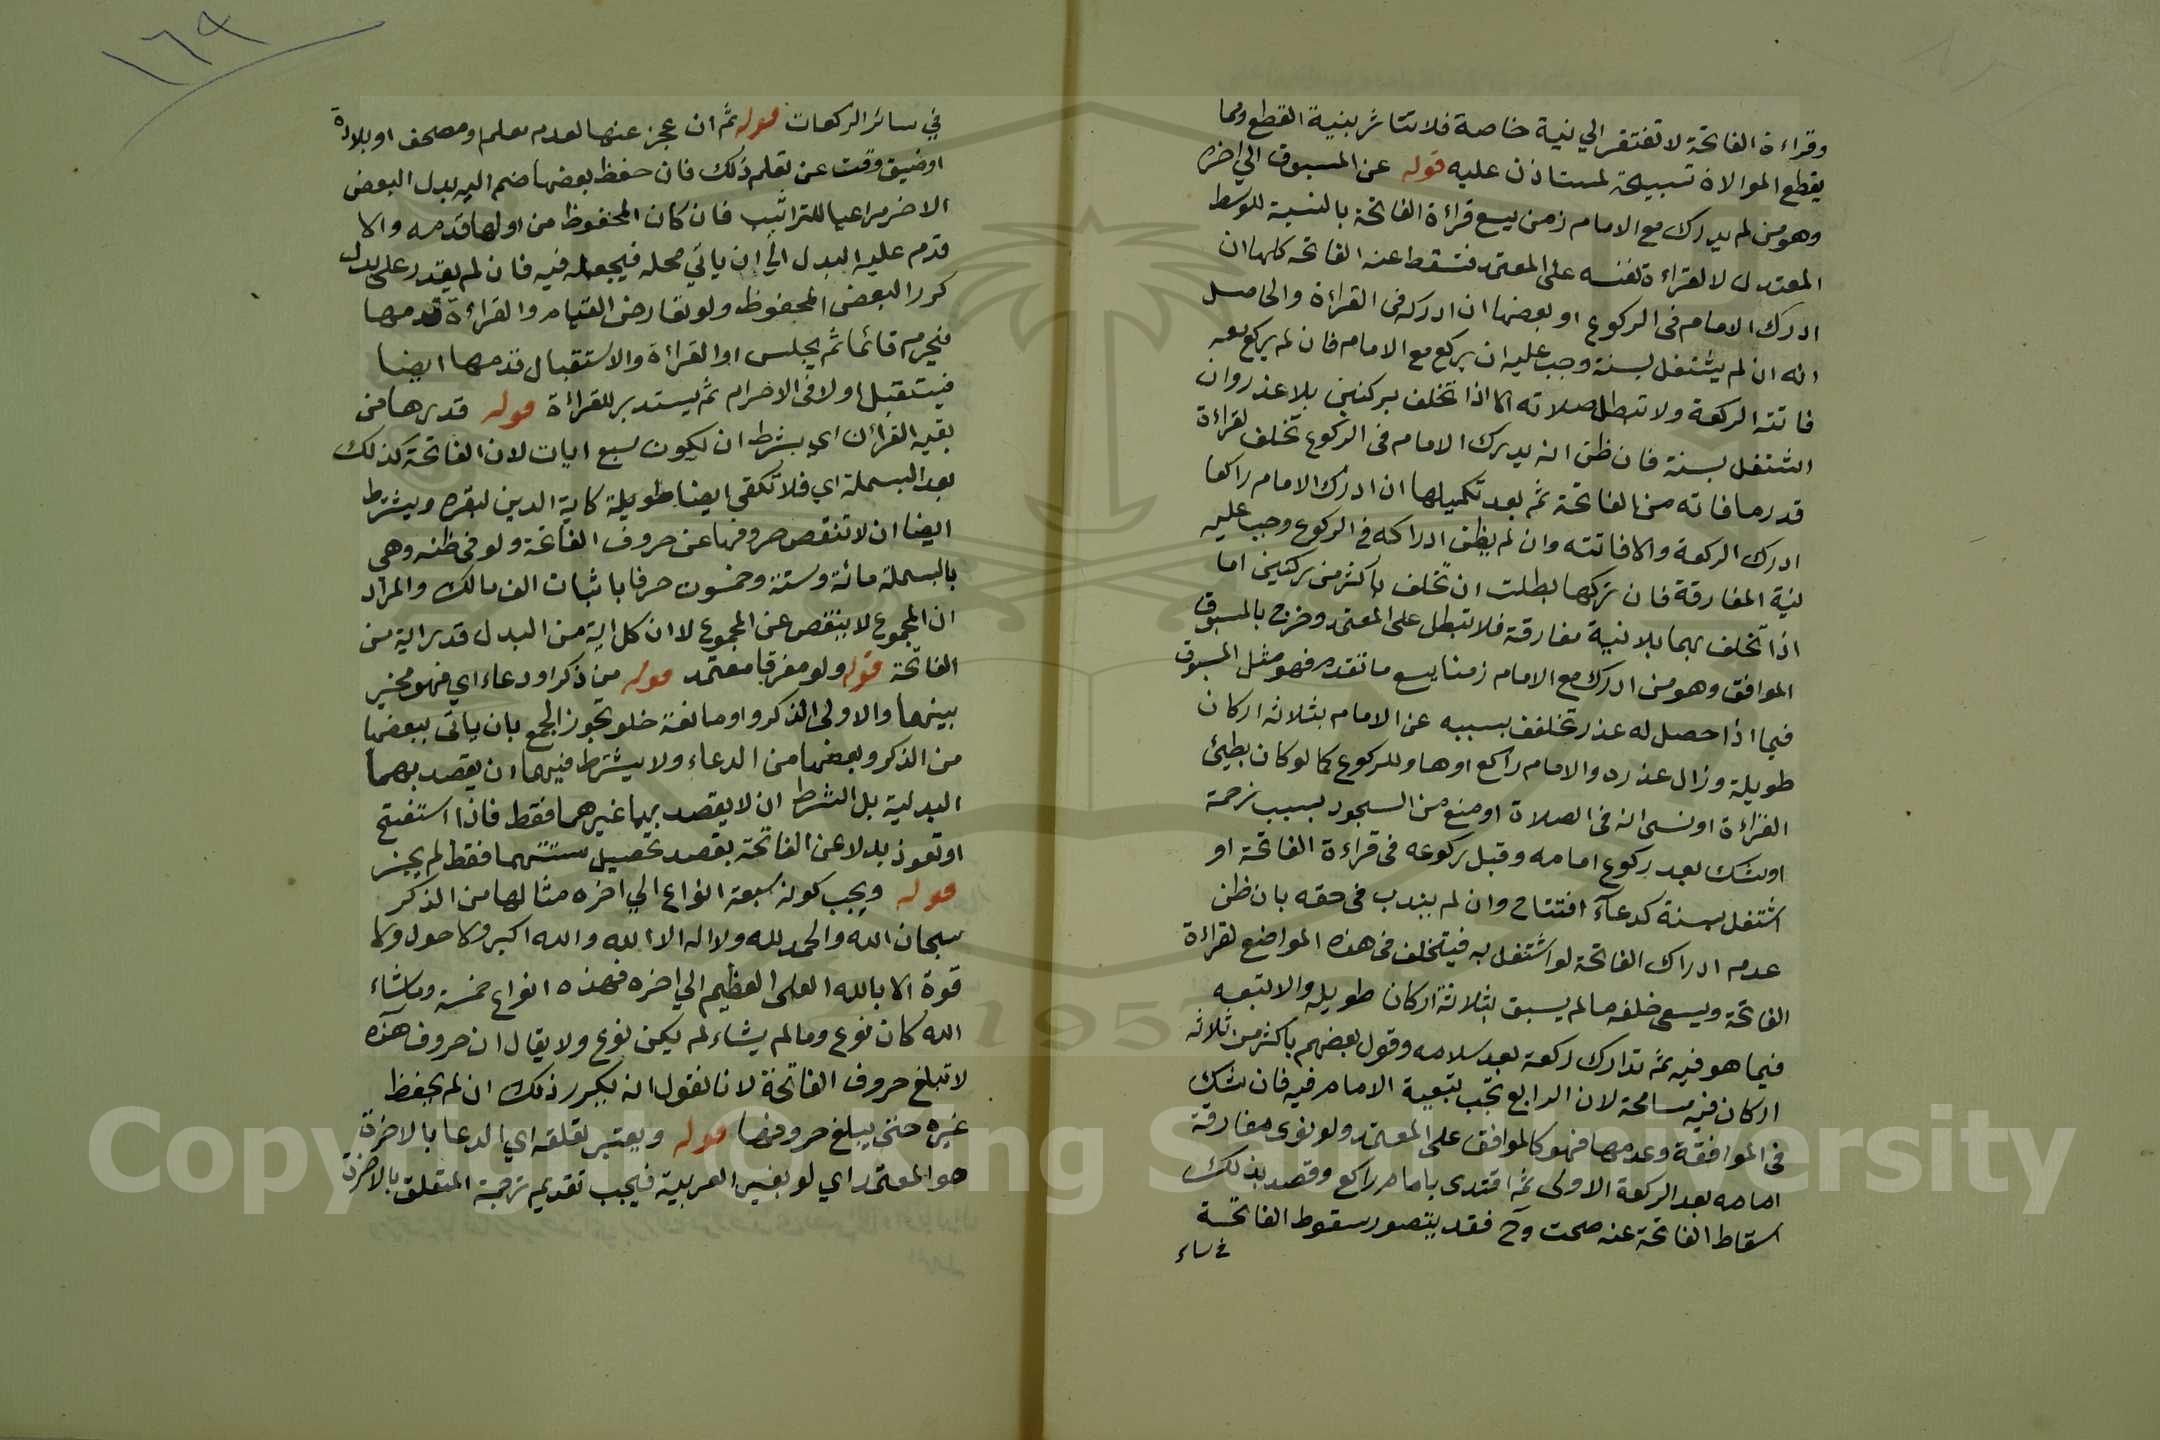 وقراءة الفاتحة لا تفتقر الي نية خاصة فلا تتاثر بنية القطع ومما
يقطع الموالاة تسبيحة لمستاذن عليه قوله عن المسبوق الي اخره
وهو من لم يدرك مع الامام زمن يسع قراءة الفاتحة بالنسبة للوسط
المعتدل لا لقراءة نفسه على المعتمد فتسقط عنه الفاتحه كلها ان
ادرك الامام فى الركوع او بعضها ان ادركه فى القراءة والحاصل
انه ان لم يشتغل بسنة وجب عليه ان يركع مع الامام فان لم يركع معه
فاتته الركعة ولا تبطل صلاته الا اذا تخلف بركنين بلا عذر وان
اشتغل بسنة فان ظن انه يدرك الامام فى الركوع تخلف لقراءة
قدر ما فاته من الفاتحة ثم بعد تكميلها ان ادرك الامام راكعا
ادرك الركعة والا فاتته وان لم يظن ادراكه في الركوع وجب عليه
نية المفارقة فان تركها بطلت ان تخلف باكثر من ركنين اما
اذا تخلف بهما بلا نية مفارقة فلا تبطل على المعتمد وخرج بالمسبوق
الموافق وهو من ادرك مع الامام زمنا يسع ما تقدم فهو مثل المسبوق
فيما اذا حصل له عذر تخلفف بسببه عن الامام بثلاثه اركان
طويلة وزال عذره والامام راكع او هاو للركوع كما لو كان بطيئ
القراءة او نسى انه فى الصلاة او منع من السجود بسبب زحمة
او شك بعد ركوع امامه وقبل ركوعه فى قراءة الفاتحة او
اشتغل بسنة كدعاء افتتاح وان لم يندب فى حقه بان ظن
عدم ادراك الفاتحة لو اشتغل به فيتخلف فى هذه المواضع لقراءة
الفاتحة ويسعى خلفه ما لم يسبق بثلاثة اركان طويله والا تبعه
فيما هو فيه ثم تدارك ركعة بعد سلامه وقول بعضهم باكثر من ثلاثه
اركان فيه مسامحة لان الرابع تجب تبعية الامام فيه فان شك
فى الموافقة وعدمها فهو كالموافق على المعتمد ولو نوى مفارقة
امامه بعد الركعة الاولى ثم اقتدى بامام راكع وقصد بذلك
اسقاط الفاتحة عنه صحت وح فقد يتصور سقوط الفاتحة
في سائر
١٦٩
في سائر الركعات قوله ثم ان عجز عنها لعدم معلم او مصحف او بلادة
او ضيق وقت عن تعلم ذلك فان حفظ بعضها ضم اليه بدل البعض
الاخر مراعيا للتراتيب فان كان المحفوظ من اولها قدمه والا
قدم عليه البدل الي ان ياتي محله فيجعله فيه فان لم يقدر على بدل
كرر البعض المحفوظ ولو تعارض القيام والقراءة قدمها
فيحرم قائما ثم يجلس او القراءة والاستقبال قدمها ايضا
فيستقبل اولا فى الاحرام ثم يستدبر للقراءة قوله قدرها من
بقيه القرآن اي بشرط ان يكون سبع ايات لان الفاتحة كذلك
بعد البسملة اي فلا تكفى ايضا طويلة كاية الدين لبقره ويشترط
ايضا ان لا تنقص حروفها عن حروف الفاتحة ولو فى ظنه وهى
بالبسملة مائة وستة وخمسون حرفا باثبات الف مالك والمراد
ان المجموع لا ينقص عن المجموع لا ان كل اية من البدل قدر اية من
الفاتحة قوله ولو مفرقا معتمد قوله من ذكر او دعاء اي فهو مخير
بينهما والاولى الذكر و او مانعة خلو تجوز الجمع بان ياتى ببعضها
من الذكر وبعضها من الدعاء ولا يشترط فيهما ان يقصد بهما
البدلية بل الشرط ان لا يقصد بهما غيرهما فقط فاذا استفتح
او تعوذ بدلا عن الفاتحة بقصد تحصيل سنتهما فقط لم يجز
قوله ويجب كونه سبعة انواع الي اخره مثالها من الذكر
سبحان الله والحمد لله ولا اله الا الله والله اكبر ولا حول ولا
قوة الا بالله العلى العظيم الي اخره فهذه انواع خمسة وماشاء
الله كان نوع وما لم يشاء لم يكن نوع ولا يقال ان حروف هذه
لا تبلغ حروف الفاتحة لانا نقول انه يكرر ذلك ان لم يحفظ
غيره حتى يبلغ حروفها قوله ويعتبر تعلقه اي الدعا بالاخرة
هو المعتمد اي لو بغير العربية فيجب تقديم ترجمة المتعلق بالاخرة
1957
Copyright © King Saud University